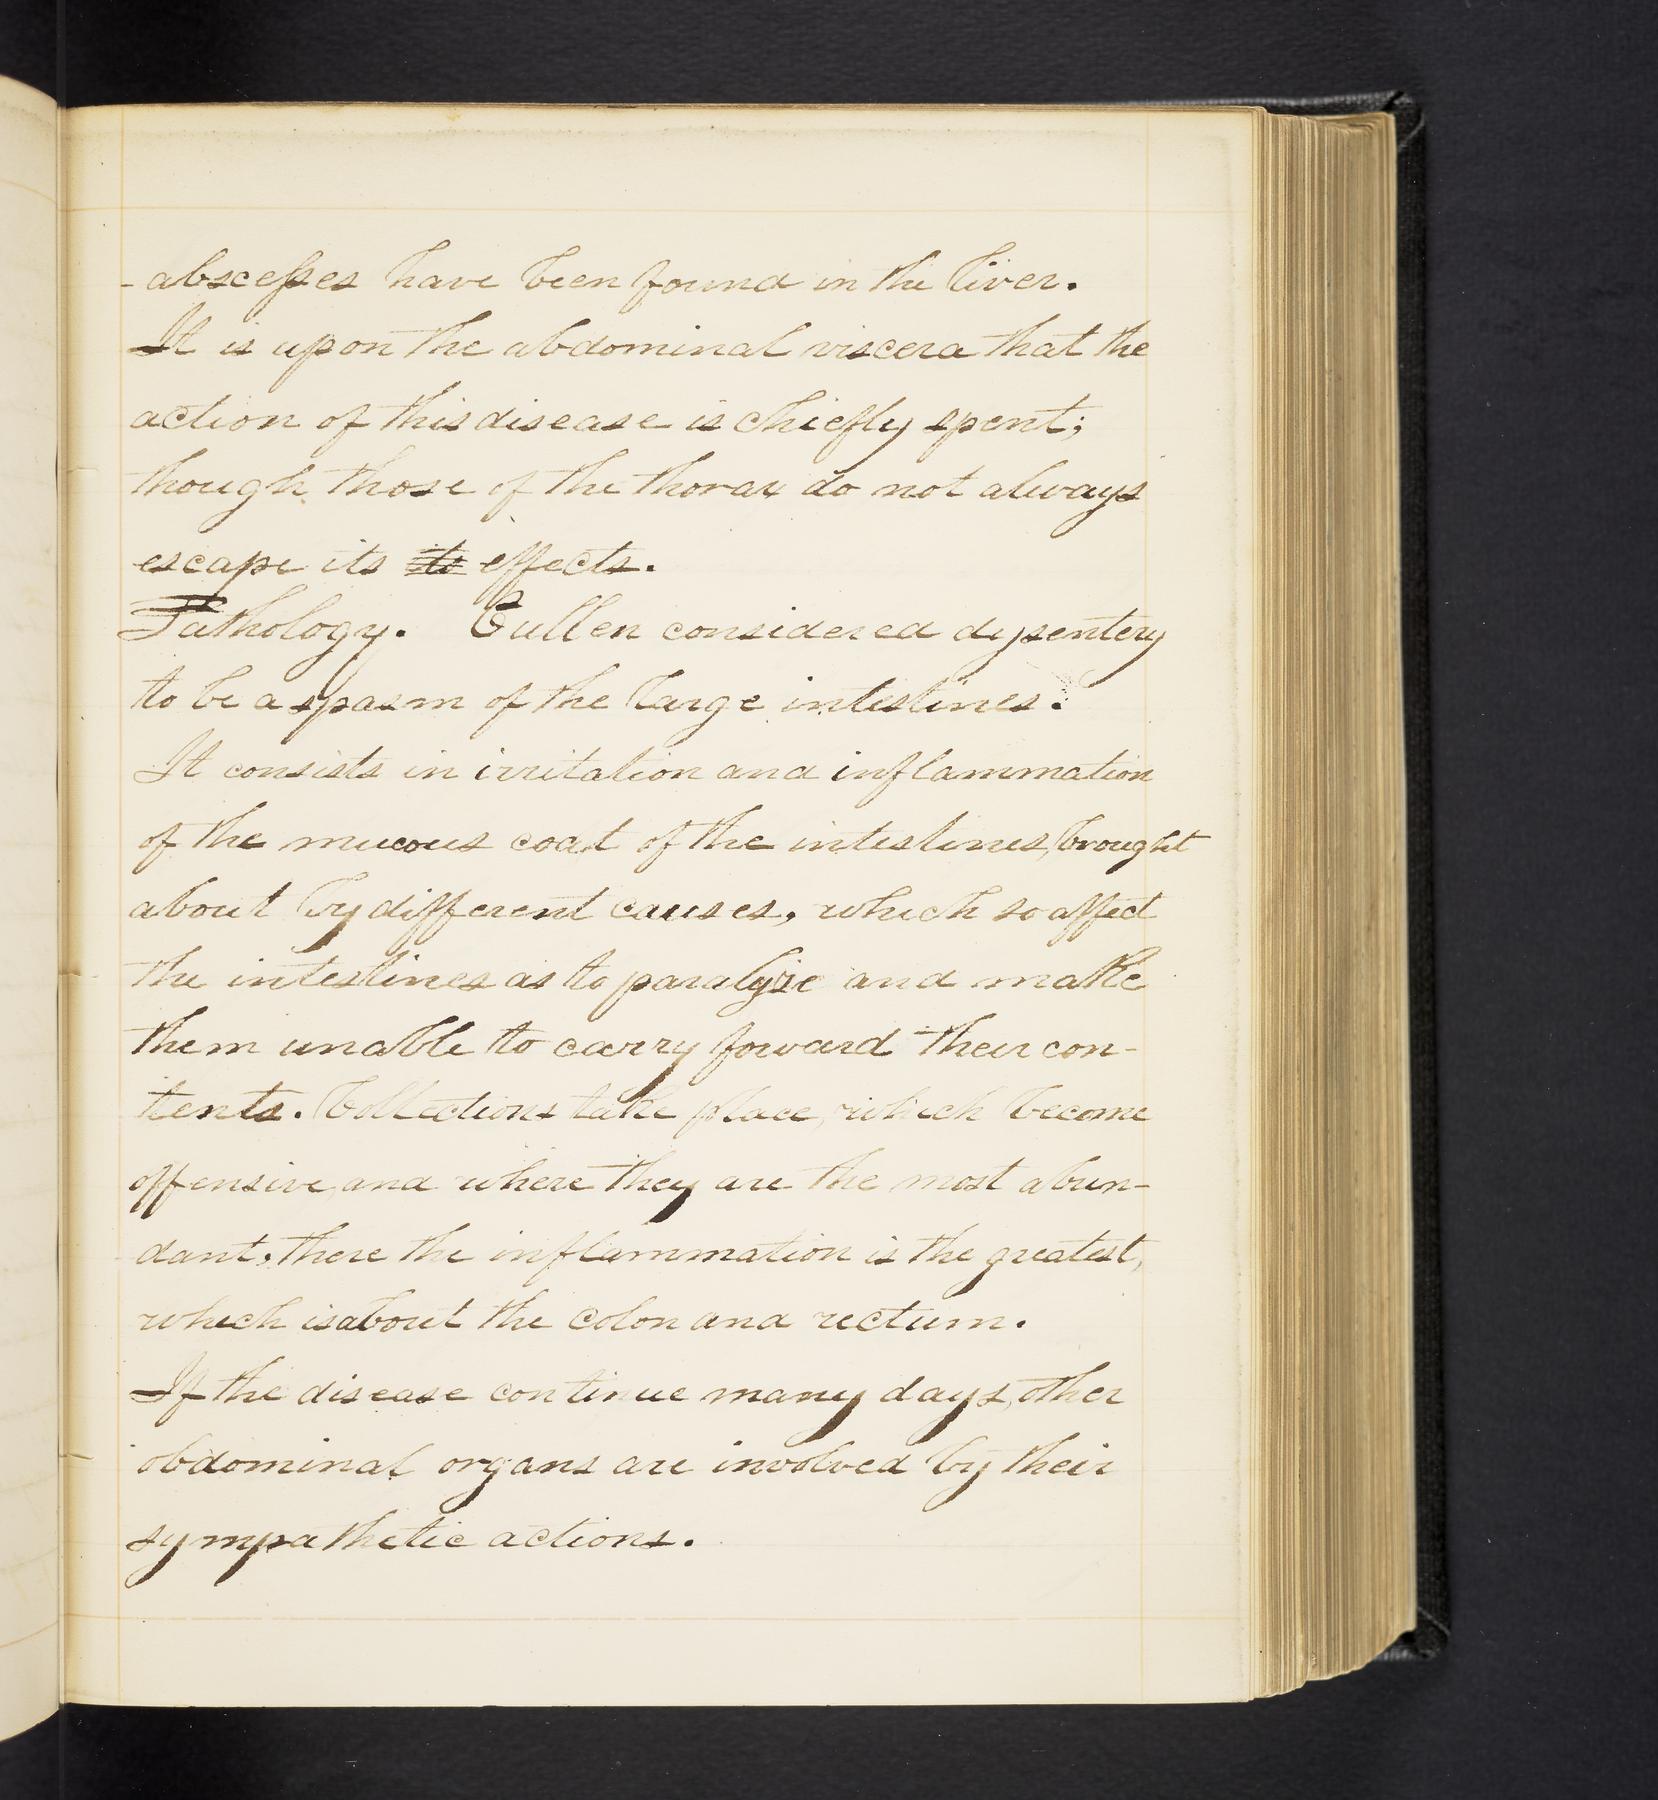 abscesses have been found in the liver.
It is upon the abdominal viscera that the
action of this disease is chiefly spent;
though those of the thorax do not always
escape its its effects.
Pathology. Cullen considered dysentery
to be a spasm of the large intestines.
It consists in irritation and inflammation
of the mucous coat of the intestines, brought
about by different causes, which so affect
the intestines as to paralyze and make
them unable to carry forward their con-
tents. Collections take place, which become
offensive, and where they are the most abun-
dant, there the inflammation is the greatest,
which is about the colon and rectum.
If the disease continue many days, other
abdominal organs are involved by their
sympathetic actions.